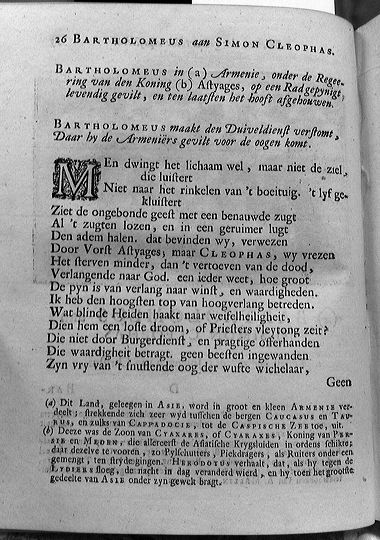 26 BARTHOLOMEUS aan SIMON CLEOPHAS.
BARTHOLOMEUS in (a) Armenie, onder de Regee-
ring van den Koning (b) Astyages, op een Rad gepynigt,
levendig gevilt, en ten laatsten het hooft afgehouwen.
BARTHOLOMEUS maakt den Duiveldienst verstomt,
Daar hy de Armeniërs gevilt voor de oogen komt.
MEn dwingt het lichaam wel, maar niet de ziel,
die luistert
Niet naar het rinkelen van 't boeituig. 't lyf ge-
kluistert
Ziet de ongebonde geest met een benauwde zugt
Al 't zugten lozen, en in een geruimer lugt
Den adem halen. dat bevinden wy, verwezen
Door Vorst Astyages; maar CLEOPHAS, wy vrezen
Het sterven minder, dan 't vertoeven van de dood,
Verlangende naar God. een ieder weet, hoe groot
De pyn is van verlang naar winst, en waardigheden.
Ik heb den hoogsten top van hoogverlang betreden.
Wat blinde Heiden haakt naar weifelheiligheit,
Dien hem een losse droom, of Priesters vleytong zeit?
Die niet door Burgerdienst, en pragtige offerhanden
Die waardigheit betragt. geen beesten ingewanden
Zyn vry van 't snuffelende oog der wufte wichelaar,
Geen
(a) Dit Land, geleegen in ASIE, word in groot en kleen ARMENIE ver-
deelt; strekkende zich zeer wyd tusschen de bergen CAUCASUS en TAU-
RUS, en zulks van CAPPADOCIE, tot de CASPISCHE ZEE toe, uit.
(b) Deeze was de Zoon van CYAXARES, of CYARAXES, Koning van PER-
SIE en MEDEN, die allereerst de Asiatische Krygsluiden in ordens schikte,
daar dezelve te vooren, zo Pylschutters, Piekdragers, als Ruiters onder een
gemengt, ten stryde gingen. HERODOTUS verhaalt, dat, als hy tegen de
LYDIERS sloeg, de nacht in dag veranderd wierd, en hy toen het grootste
gedeelte van ASIE onder zyn gewelt bragt.